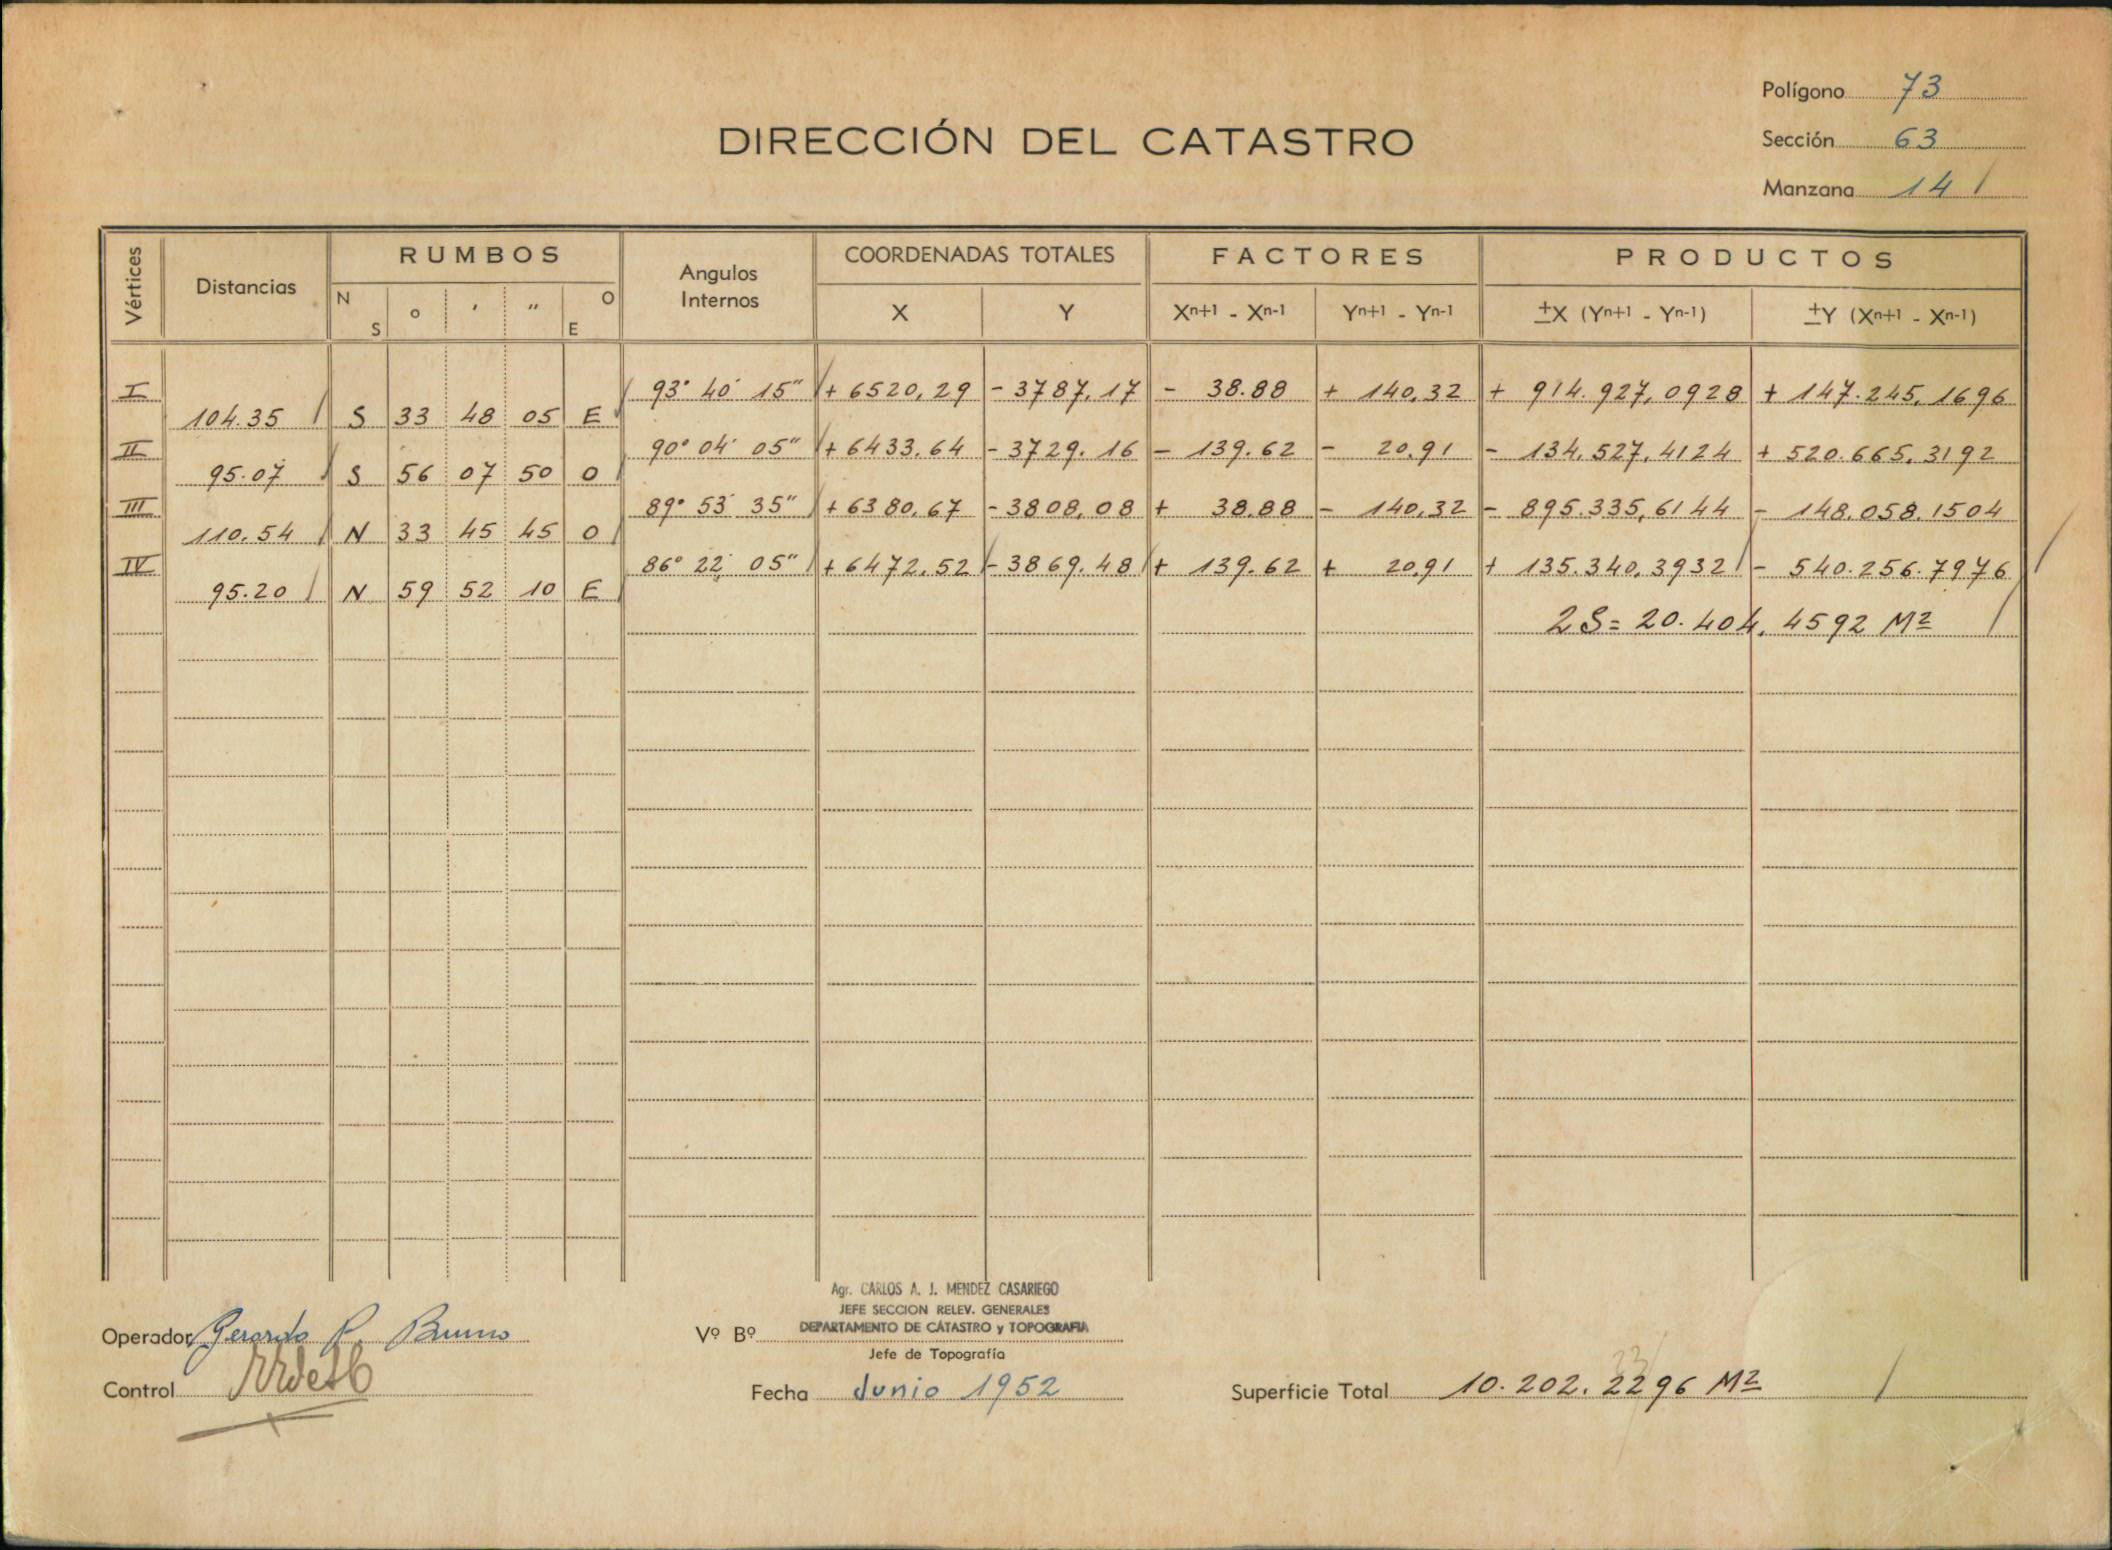 Polígono 73
DIRECCIÓN DEL CATASTRO
Sección 63
Manzana 14
Vértices Distancias RUMBOS Angulos Internos COORDENADAS TOTALES FACTORES PRODUCTOS
N S o ' " O E X Y Xn+1 - Xn-1 Yn+1 - Yn-1 ±X (Yn+1 - Yn-1) ±Y (Xn+1 - Xn-1)
I 93° 40' 15" + 6520,29 - 3787,17 - 38.88 + 140,32 + 914.927,0928 + 147.245,1696
104.35 S 33 48 05 E
II 90° 04' 05" + 6433.64 - 3729.16 - 139.62 - 20,91 - 134.527,4124 + 520.665,3192
95.07 S 56 07 50 O
III 89° 53' 35" + 6380,67 - 3808,08 + 38.88 - 140,32 - 895.335,6144 - 148.058.1504
110.54 N 33 45 45 O
IV 86° 22' 05" + 6472.52 - 3869.48 + 139.62 + 20,91 + 135.340,3932 - 540.256.7976
95.20 N 59 52 10 E
2S = 20.404,4592 M2
Agr. CARLOS A. J. MENDEZ CASARIEGO
JEFE SECCION RELEV. GENERALES
DEPARTAMENTO DE CATASTRO y TOPOGRAFIA
Operador Gerardo P. Bruno Vº Bº
Jefe de Topografía
Control Fecha Junio 1952 Superficie Total 10.202.2296 M2
33